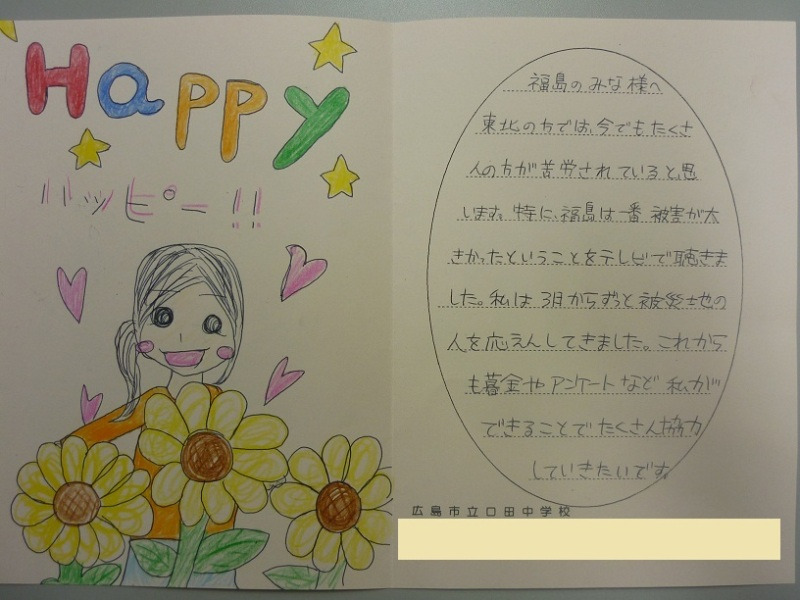 Happy
ハッピー!!
福島のみな様へ
東北の方では、今でもたくさ
人の方が苦労されていると思
します。特に、福島は一番被害が大
きかったということをテレビで聴きま
した。私は3月からずっと被災土地の
人を応えんしてきました。これから
も募金やアンケートなど私が
できることでたくさん協力
していきたいです。
広島市立口田中学校